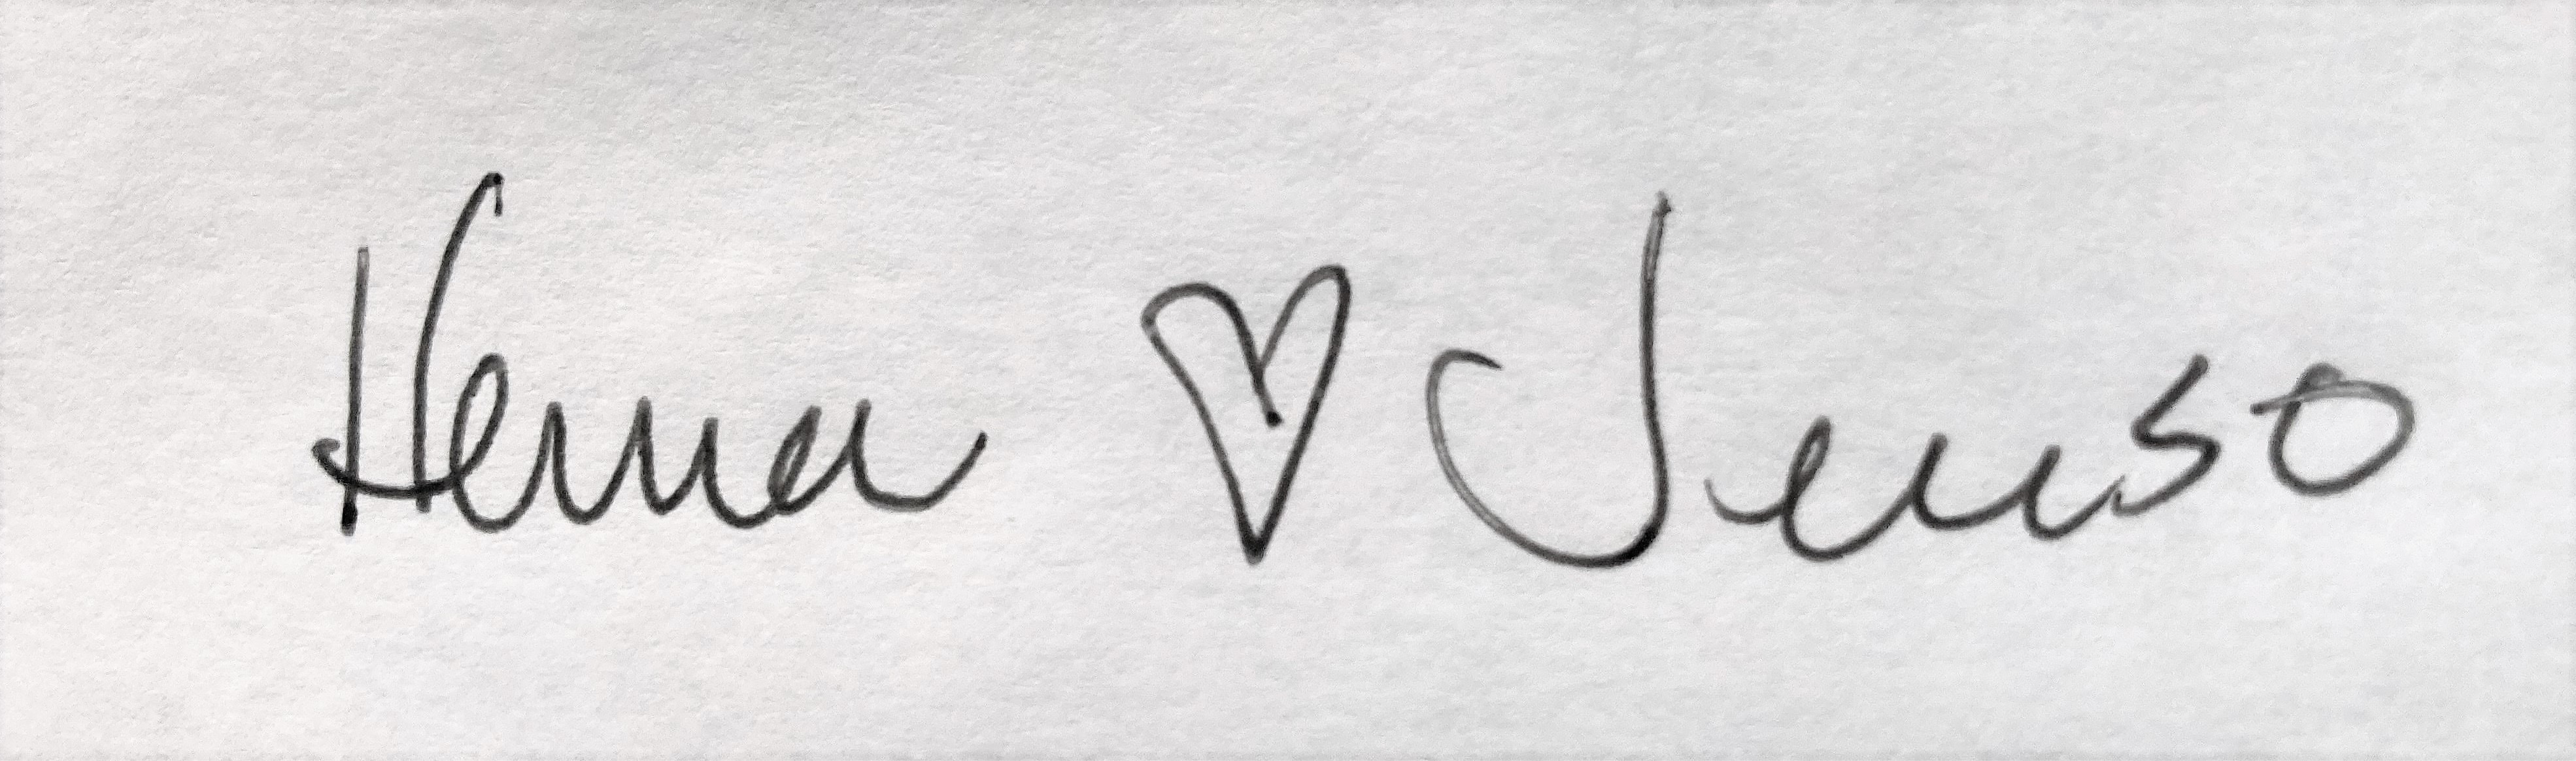 Hema ♡ Jenso